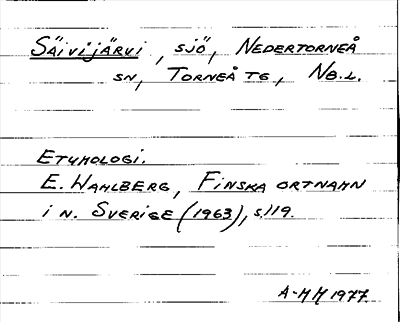 Säivijärvi, sjö, Nedertorneå
sn, Torneå tg, Nb.l.
Etymologi.
E. Wahlberg, Finska ortnamn
i n. Sverige (1963), s.119.
A-MH 1977.